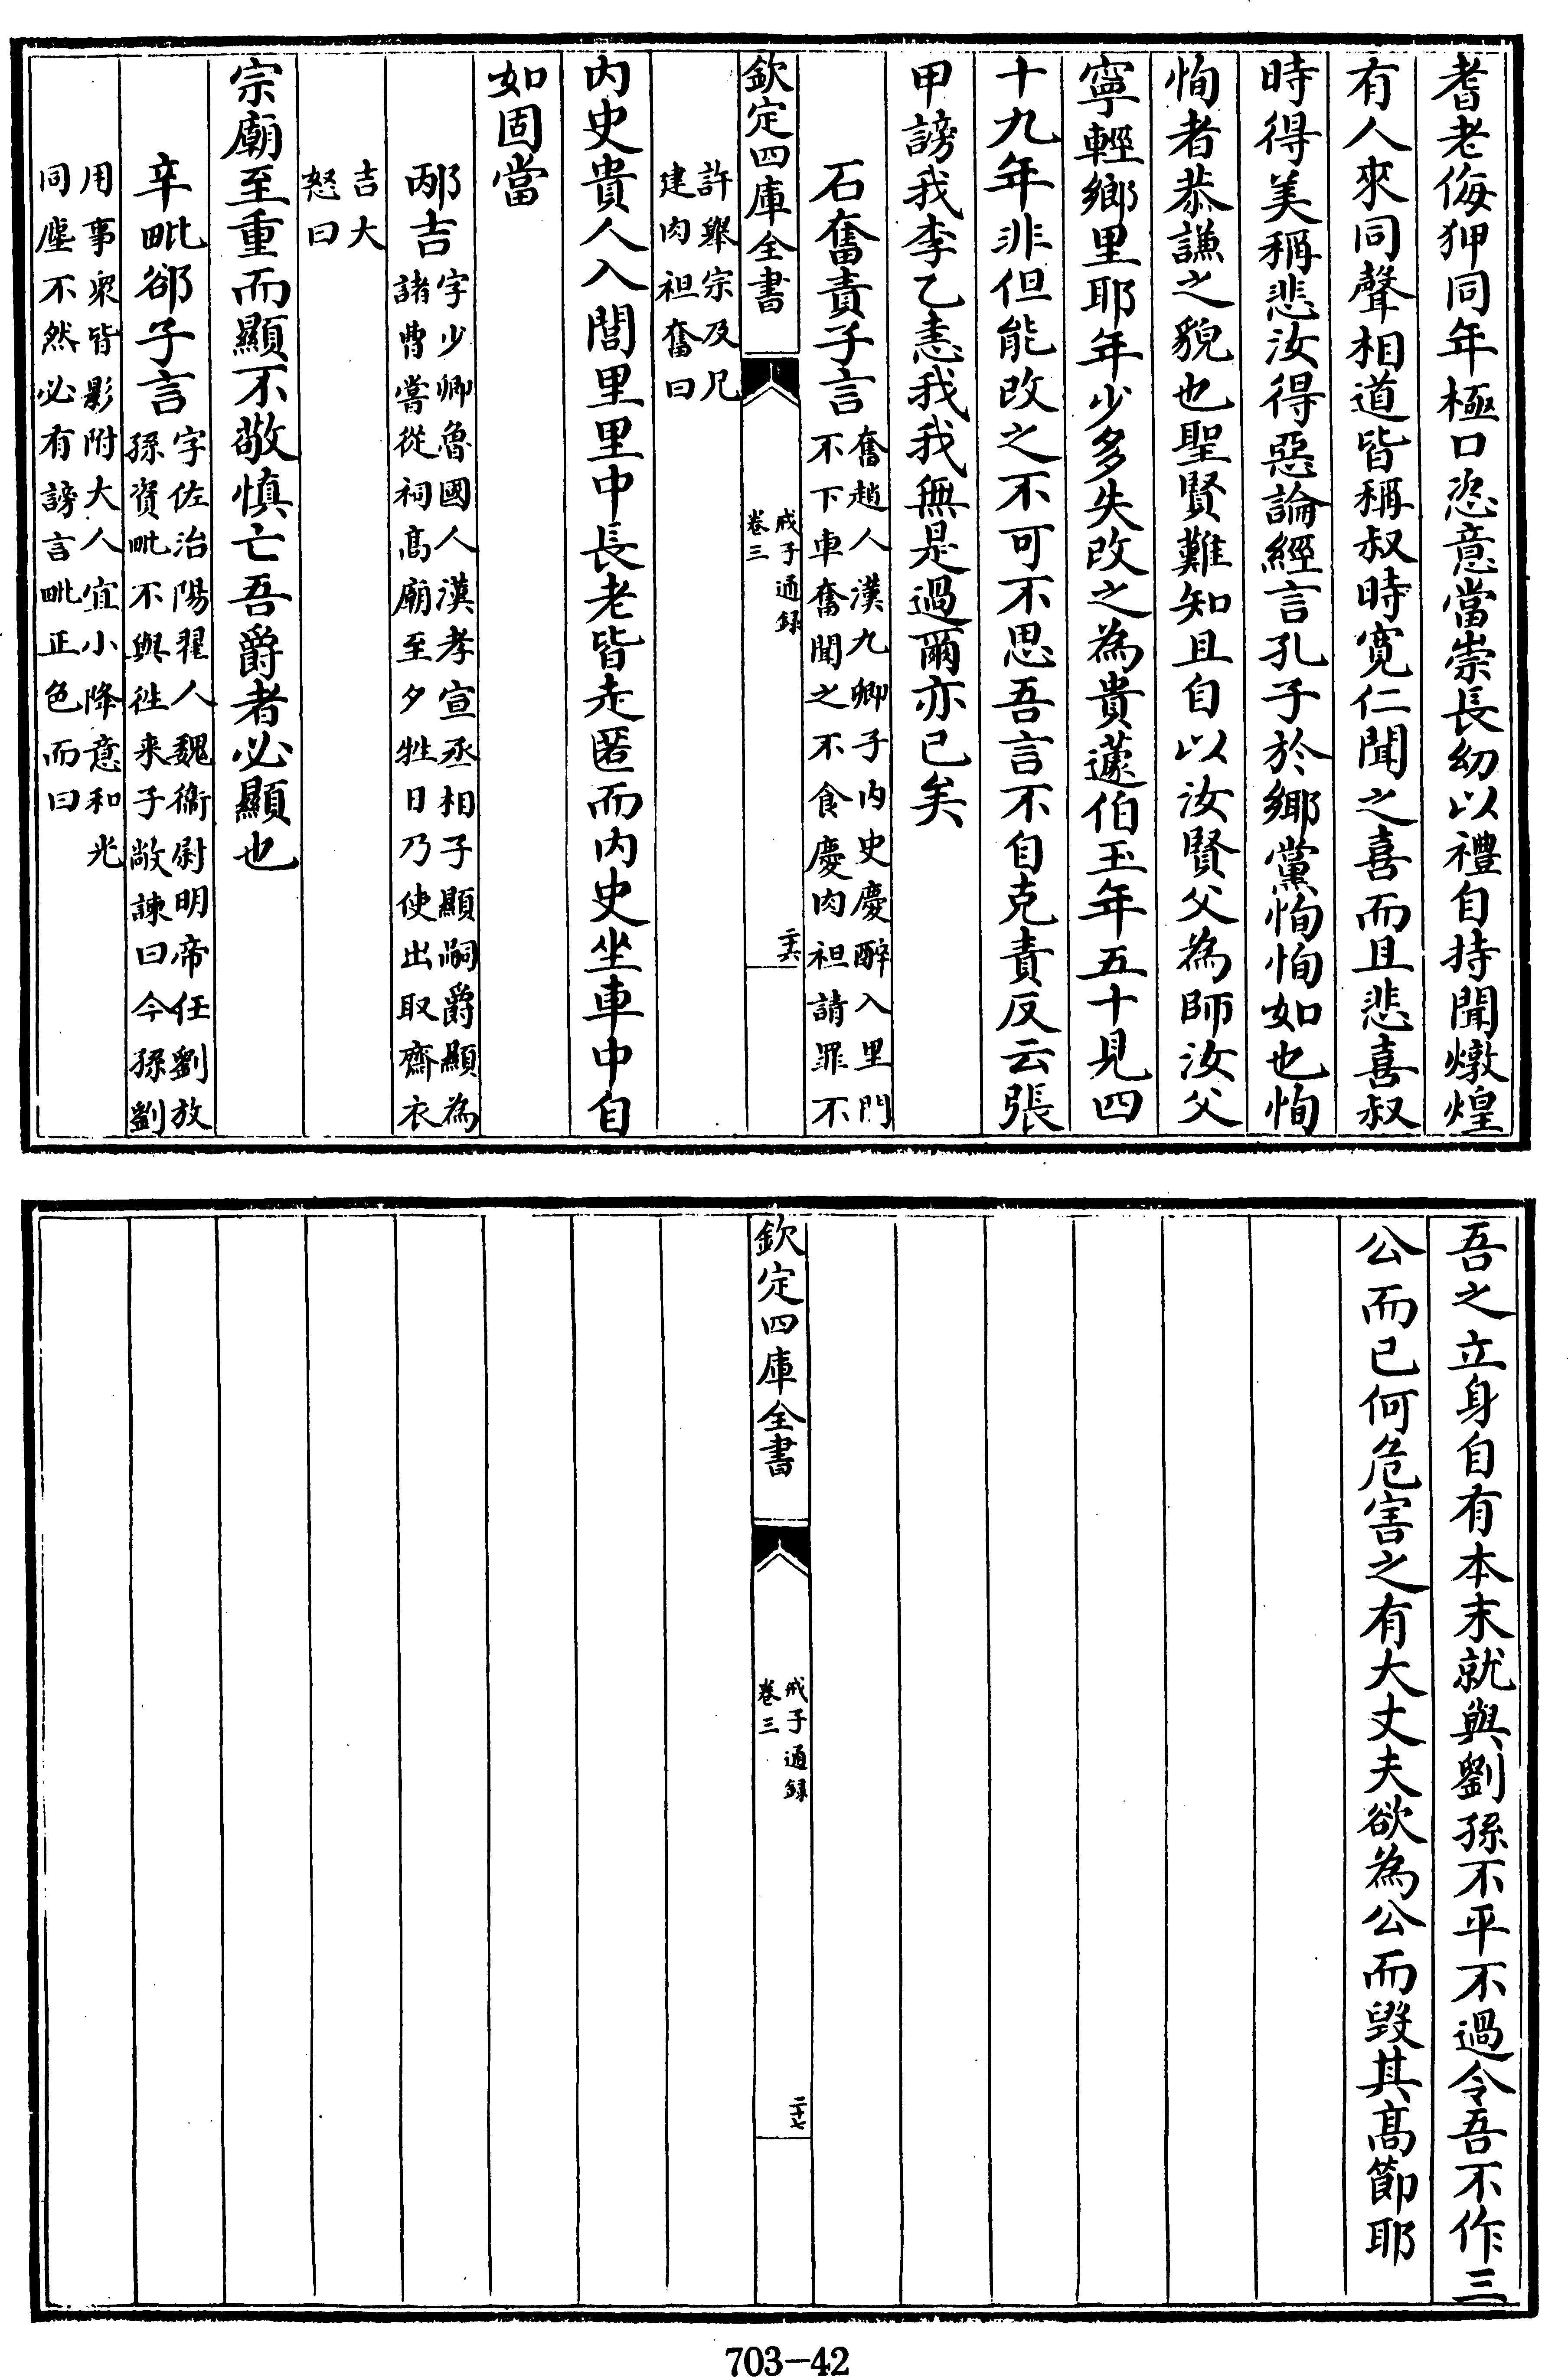 耆老侮狎同年極口恣意當崇長幼以禮自持聞燉煌
有人來同聲相道皆稱叔時寛仁聞之喜而且悲喜叔
時得美稱悲汝得惡論經言孔子於鄉黨恂恂如也恂
恂者恭謙之貌也聖賢難知且自以汝賢父為師汝父
寧輕鄉里耶年少多失改之為貴蘧伯玉年五十見四
十九年非但能改之不可不思吾言不自克責反云張
甲謗我李乙恚我我無是過爾亦已矣
石奮責子言奮趙人漢九卿子内史慶醉入里門
不下車奮聞之不食慶肉袒請罪不
欽定四庫全書
戒子通録
卷三
二十六
許舉宗及兄
建肉袒奮曰
内史貴人入閭里里中長老皆走匿而内史坐車中自
如固當
邴吉字少卿魯國人漢孝宣丞相子顯嗣爵顯為
諸曹嘗從祠髙廟至夕牲日乃使出取齋衣
吉大
怒曰
宗廟至重而顯不敬慎亡吾爵者必顯也
辛毗郤子言字佐治陽翟人魏衛尉明帝任劉放
孫資毗不與徃来子敞諫曰今孫劉
用事衆皆影附大人宜小降意和光
同塵不然必有謗言毗正色而曰
吾之立身自有本末就與劉孫不平不過令吾不作三
公而已何危害之有大丈夫欲為公而毁其髙節耶
欽定四庫全書
戒子通録
卷三
二十七
703-42